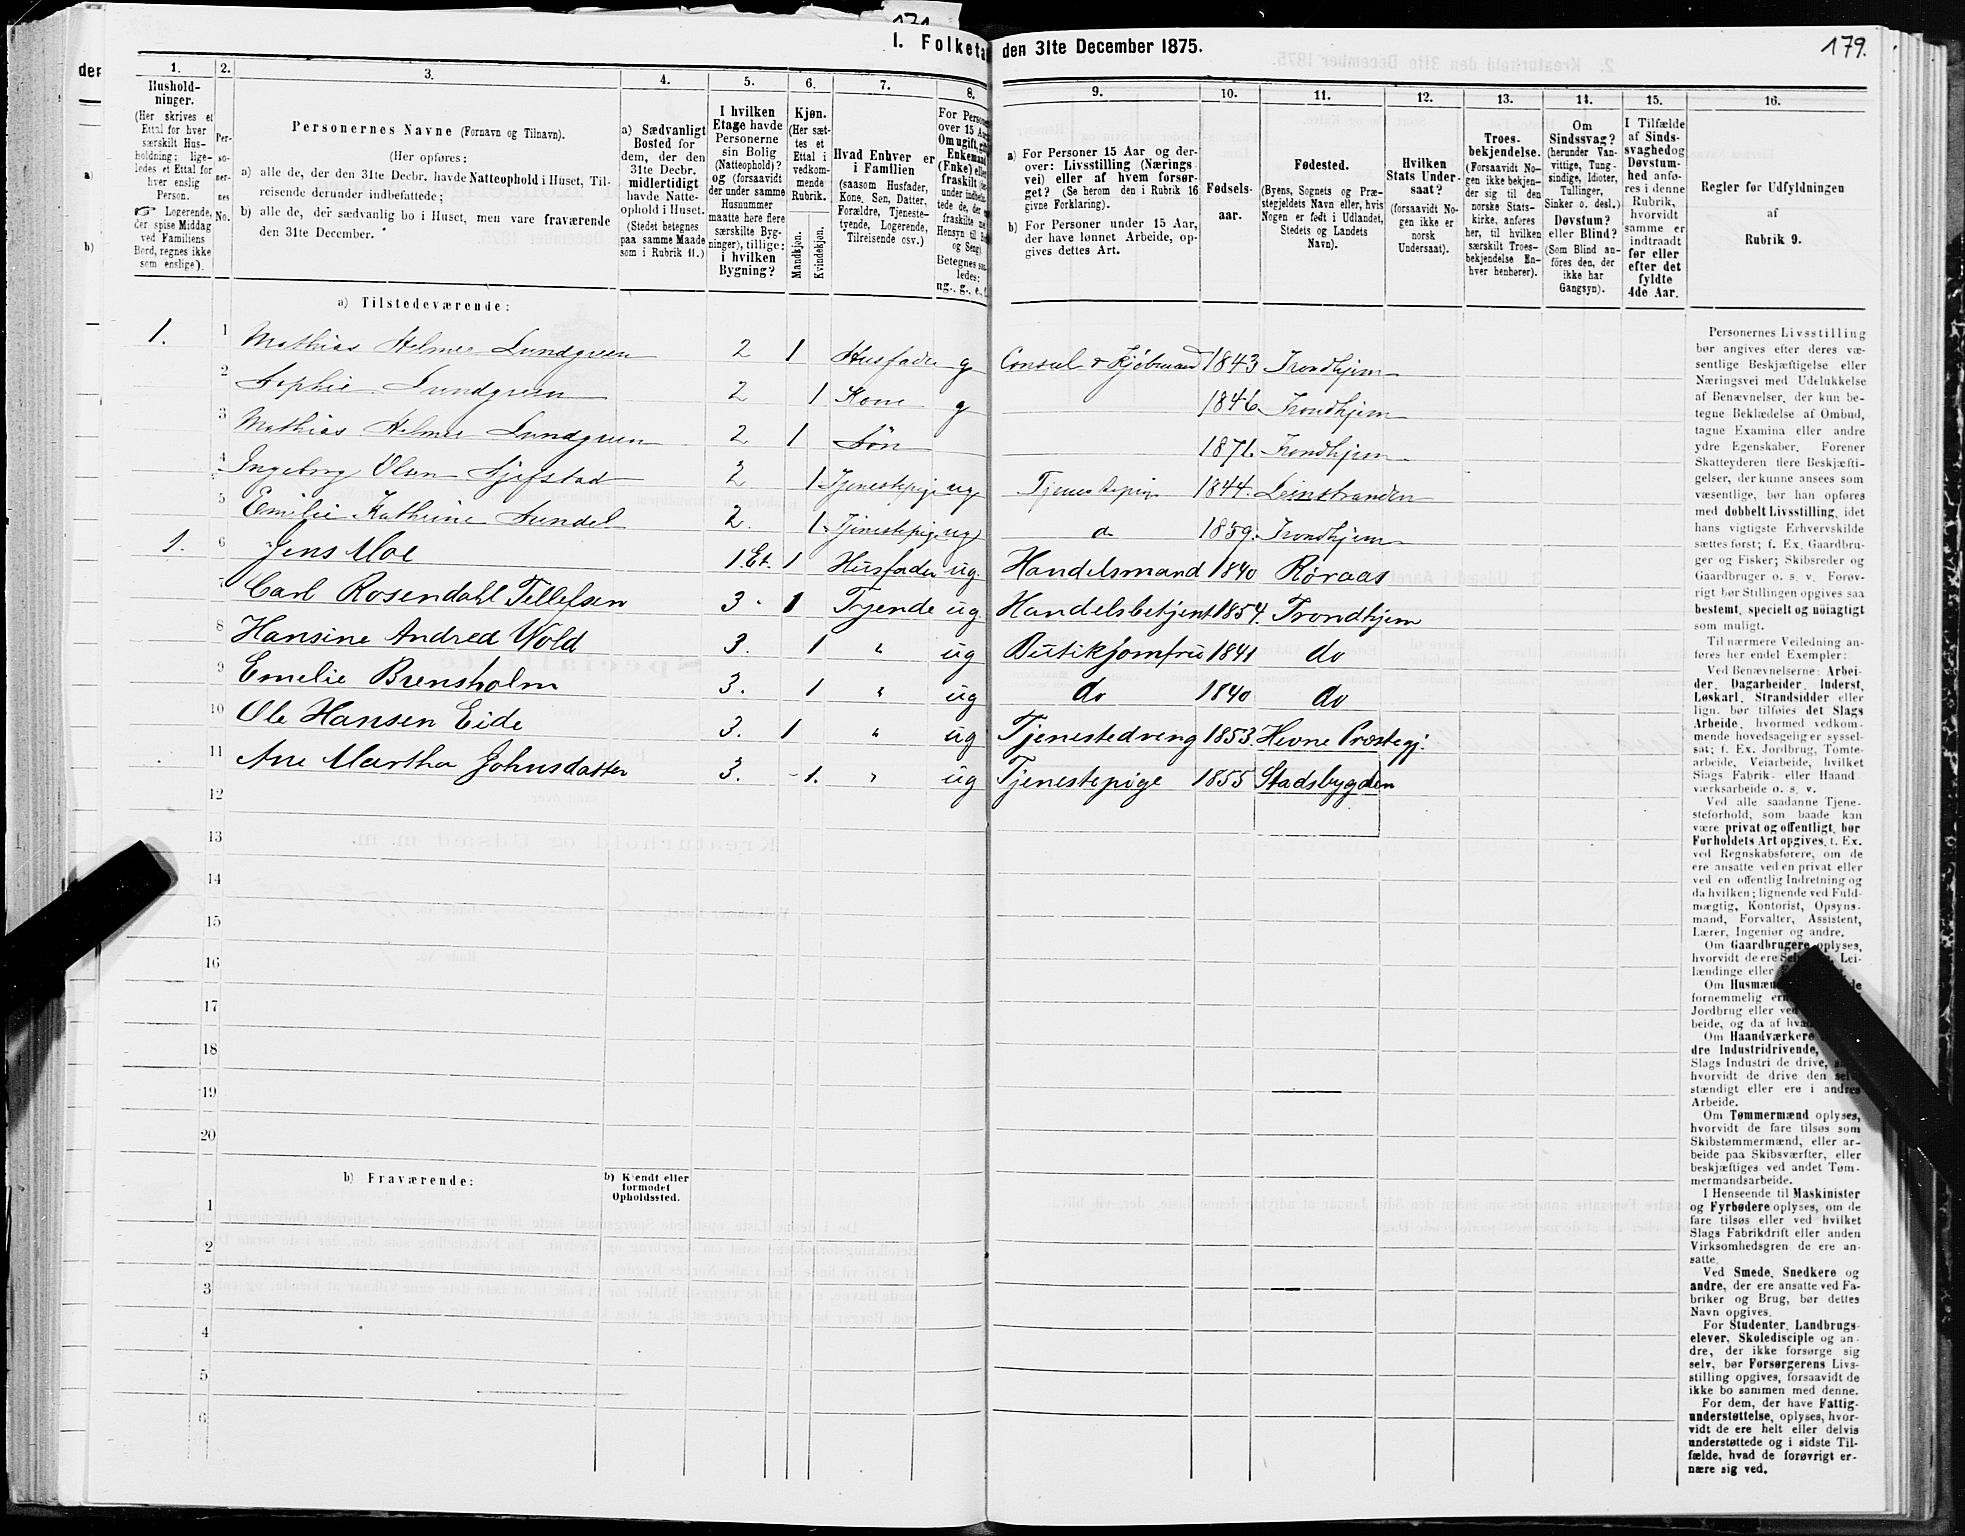 171
I. Folketæ
den 31te December 1875.
179.
der
a)
b)
1.
2.
3.
4.
5.
6.
7.
8.
9.
10.
11.
12.
13.
14.
15.
16.
Hushold-
ninger.
(Her skrives et
Ettal for hver
særskilt Hus-
holdning; lige-
ledes et Ettal for
hver enslig
Person.
☞ Logerende,
der spise Middag
ved Familiens
Bord, regnes ikke
som enslige).
Per-
so-
ner-
nes
No.
Personernes Navne (Fornavn og Tilnavn).
(Her opføres:
a) alle de, der den 31te Decbr. havde Natteophold i Huset, Til-
reisende derunder indbefattede;
b) alle de, der sædvanlig bo i Huset, men vare fraværende
den 31te December.
a) Sædvanligt
Bosted for
dem, der den
31te Decbr.
midlertidigt
havde Natte-
ophold i Huset.
(Stedet betegnes
paa samme Maade
som i Rubrik 11.)
I hvilken
Etage havde
Personerne
sin Bolig
(Natteophold)?
og (forsaavidt
der under samme
Husnummer
maatte høre flere
særskilte Byg-
ninger), tillige:
i hvilken
Bygning?
Kjøn.
(Her sæt-
tes et
Ettal i
vedkom-
mende
Rubrik.
Mandkjøn.
Kvindekjøn.
Hvad Enhver er
i Familien
(saasom Husfader,
Kone, Søn, Datter,
Forældre, Tjeneste-
tyende, Logerende,
Tilreisende osv.)
For Persone
over 15 Aa
Om ugift, gift
Enkemand
(Enke) eller
fraskilt
under indbefat-
tede de, der
fraskilte
Hensyn til Bo
og Seng)
Betegnes saa-
ledes:
ug., g., e., f.
a) For Personer 15 Aar og der-
over: Livsstilling (Nærings-
vei) eller af hvem forsør-
get? (Se herom den i Rubrik 16
givne Forklaring).
b) For Personer under 15 Aar,
der have lønnet Arbeide, op-
gives dettes Art.
Fødsels-
aar.
Fødested.
(Byens, Sognets og Præ-
stegjeldets Navn eller, hvis
Nogen er født i Udlandet,
Stedets og Landets
Navn).
Hvilken
Stats Under-
saat?
(forsaavidt No-
gen ikke er
norsk
Undersaat).
Troes-
bekjendelse.
(Forsaavidt No-
gen ikke bekjen-
der sig til den
norske Stats-
kirke, anføres
her, til hvilken
særskilt Troes-
bekjendelse En-
hver henhører).
Om
Sindssvag?
(herunder Van-
vittige, Tung-
sindige, Idioter,
Tullinger,
Sinker o. desl.)
Døvstum?
eller Blind?
(Som Blind an-
føres den, der
ikke har
Gangsyn).
I Tilfælde
af Sinds-
svaghed og
Døvstum-
hed anfø-
res i denne
Rubrik,
hvorvidt
samme er
indtraadt
før eller
efter det
fyldte
4de Aar.
Regler for Udfyldningen
af
Rubrik 9.
a) Tilstedeværende:
1. 1 Mathias Helmer Lundgreen 2 1 Husfader g Consul & Kjøbmand 1843 Trondhjem
2 Sophie Lundgreen 2 1 Kone g 1846. Trondhjem
3 Mathias Helmer Lundgreen 2 1 Søn 1871. Trondhjem
4 Ingeborg Olsen 2 1 Tjenestepige ug Tjenestepige 1844. Leinstranden
5 Emilie Kathrine Sundel 2. 1. Tjenestepige ug d 1859. Trondhjem
1. 6 Jens Moe 1 Et. 1 Husfader ug. Handelsmand 1840 Røraas
7 Carl Rosendahl Tellefsen 3 1 Tyende ug. Handelsbetjent 1854. Trondhjem
8 Hansine Andrea Wold 3. 1 " ug Butikjomfru 1841 do
9 Emelie Brensholm 3. 1 " ug do 1840 do
10 Ole Hansen Eide 3. 1 " ug Tjenestedreng 1853. Hevne Præstegj.
11 Ane Martha Johnsdatter 3. 1. " ug Tjenestepige 1855 Stadsbygden
12
13
14
15
16
17
18
19
20
b) Fraværende:
b) Kjendt eller
formodet
Opholdssted.
1
2
3
4
5
6
Personernes Livsstilling
bør angives efter deres væ-
sentlige Beskjæftigelse eller
Næringsvei med Udelukkelse
af Benævnelser, der kun be-
tegne Beklædelse af Ombud,
tagne Examina eller andre
ydre Egenskaber. Forener
Skatteyderen flere Beskjæfti-
gelser, der kunne ansees som
væsentlige, bør han opføres
med dobbelt Livsstilling, idet
hans vigtigste Erhvervskilde
sættes først; f. Ex. Gaardbru-
ger og Fisker; Skibsreder og
Gaardbruger o. s. v. Forøv-
rigt bør Stillingen opgives saa
bestemt, specielt og nøiagtigt
som muligt.
Til nærmere Veiledning an-
føres her endel Exempler:
Ved Benævnelserne: Arbei-
der, Dagarbeider, Inderst,
Løskarl, Strandsidder eller
lign. bør tilføies det Slags
Arbeide, hvormed vedkom-
mende hovedsagelig er syssel-
sat; f. Ex. Jordbrug, Tomte-
arbeide, Veiarbeide, hvilket
Slags Fabrik- eller Haand-
værksarbeide o. s. v.
Ved alle saadanne Tjene-
steforhold, som baade kan
være privat og offentligt, bør
Forholdets Art opgives, f. Ex.
ved Regnskabsførere, om de
ere ansatte ved en privat eller
ved en offentlig Indretning og
da hvilken; lignende ved Fuld-
mægtig, Kontorist, Opsyns-
mand, Forvalter, Assistent,
Lærer, Ingeniør og andre.
Om Gaardbrugere oplyses,
hvorvidt de ere Lei-
lændinge eller
Om Husmæn
fornemmelig
Jordbrug eller ved
beide, og da af
Om Haandværkere
dre Industridrivende,
Slags Industri de drive,
hvorvidt de drive den selv-
stændigt eller ere i andres
Arbeide.
Om Tømmermænd oplyses,
hvorvidt de fare tilsøs som
Skibstømmermænd, eller ar-
beide paa Skibsværfter, eller
beskjæftiges ved andet Tøm-
mermandsarbeide.
I Henseende til Maskinister
og Fyrbødere oplyses, om de
fare tilsøs eller ved hvilket
Slags Fabrikdrift eller anden
Virksomhedsgren de ere an-
satte.
Ved Smede, Snedkere og
andre, der ere ansatte ved Fa-
briker og Brug, bør dettes
Navn opgives.
For Studenter, Landbrugs-
elever, Skoledisciple og an-
dre, der ikke forsørge sig
selv, bør Forsørgerens Livs-
stilling opgives, forsaavidt de
ikke bo sammen med denne.
For dem, der have Fattig-
understøttelse, oplyses, hvor-
vidt de ere helt eller delvis
understøttede og i sidste Til-
fælde, hvad de forøvrigt er-
nære sig ved.